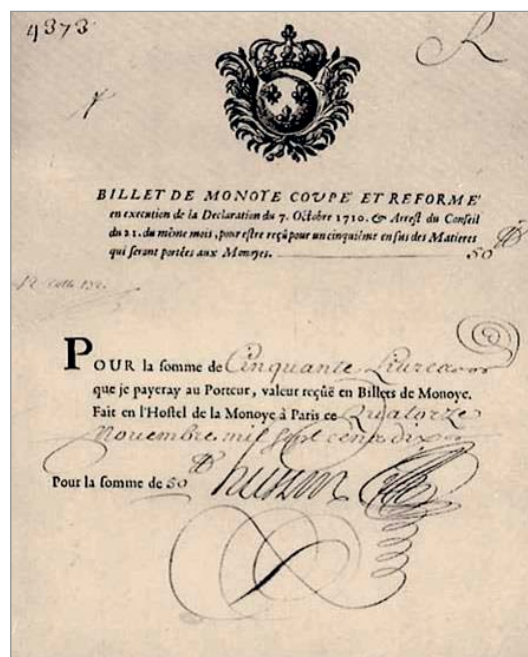 4373
R
BILLET DE MONOYE COUPE' ET REFORME'
en execution de la Declaration du 7. Octobre 1710. & Arrest du Conseil
du 21. du même mois, pour estre reçû pour un cinquiéme en sus des Matieres
qui seront portées aux Monoyes. 50 ₶
POUR la somme de Cinquante Livres
que je payeray au Porteur, valeur reçûë en Billets de Monoye.
Fait en l'Hostel de la Monoye à Paris ce Quatorze
Novembre mil sept cens dix
Pour la somme de 50 ₶ husson